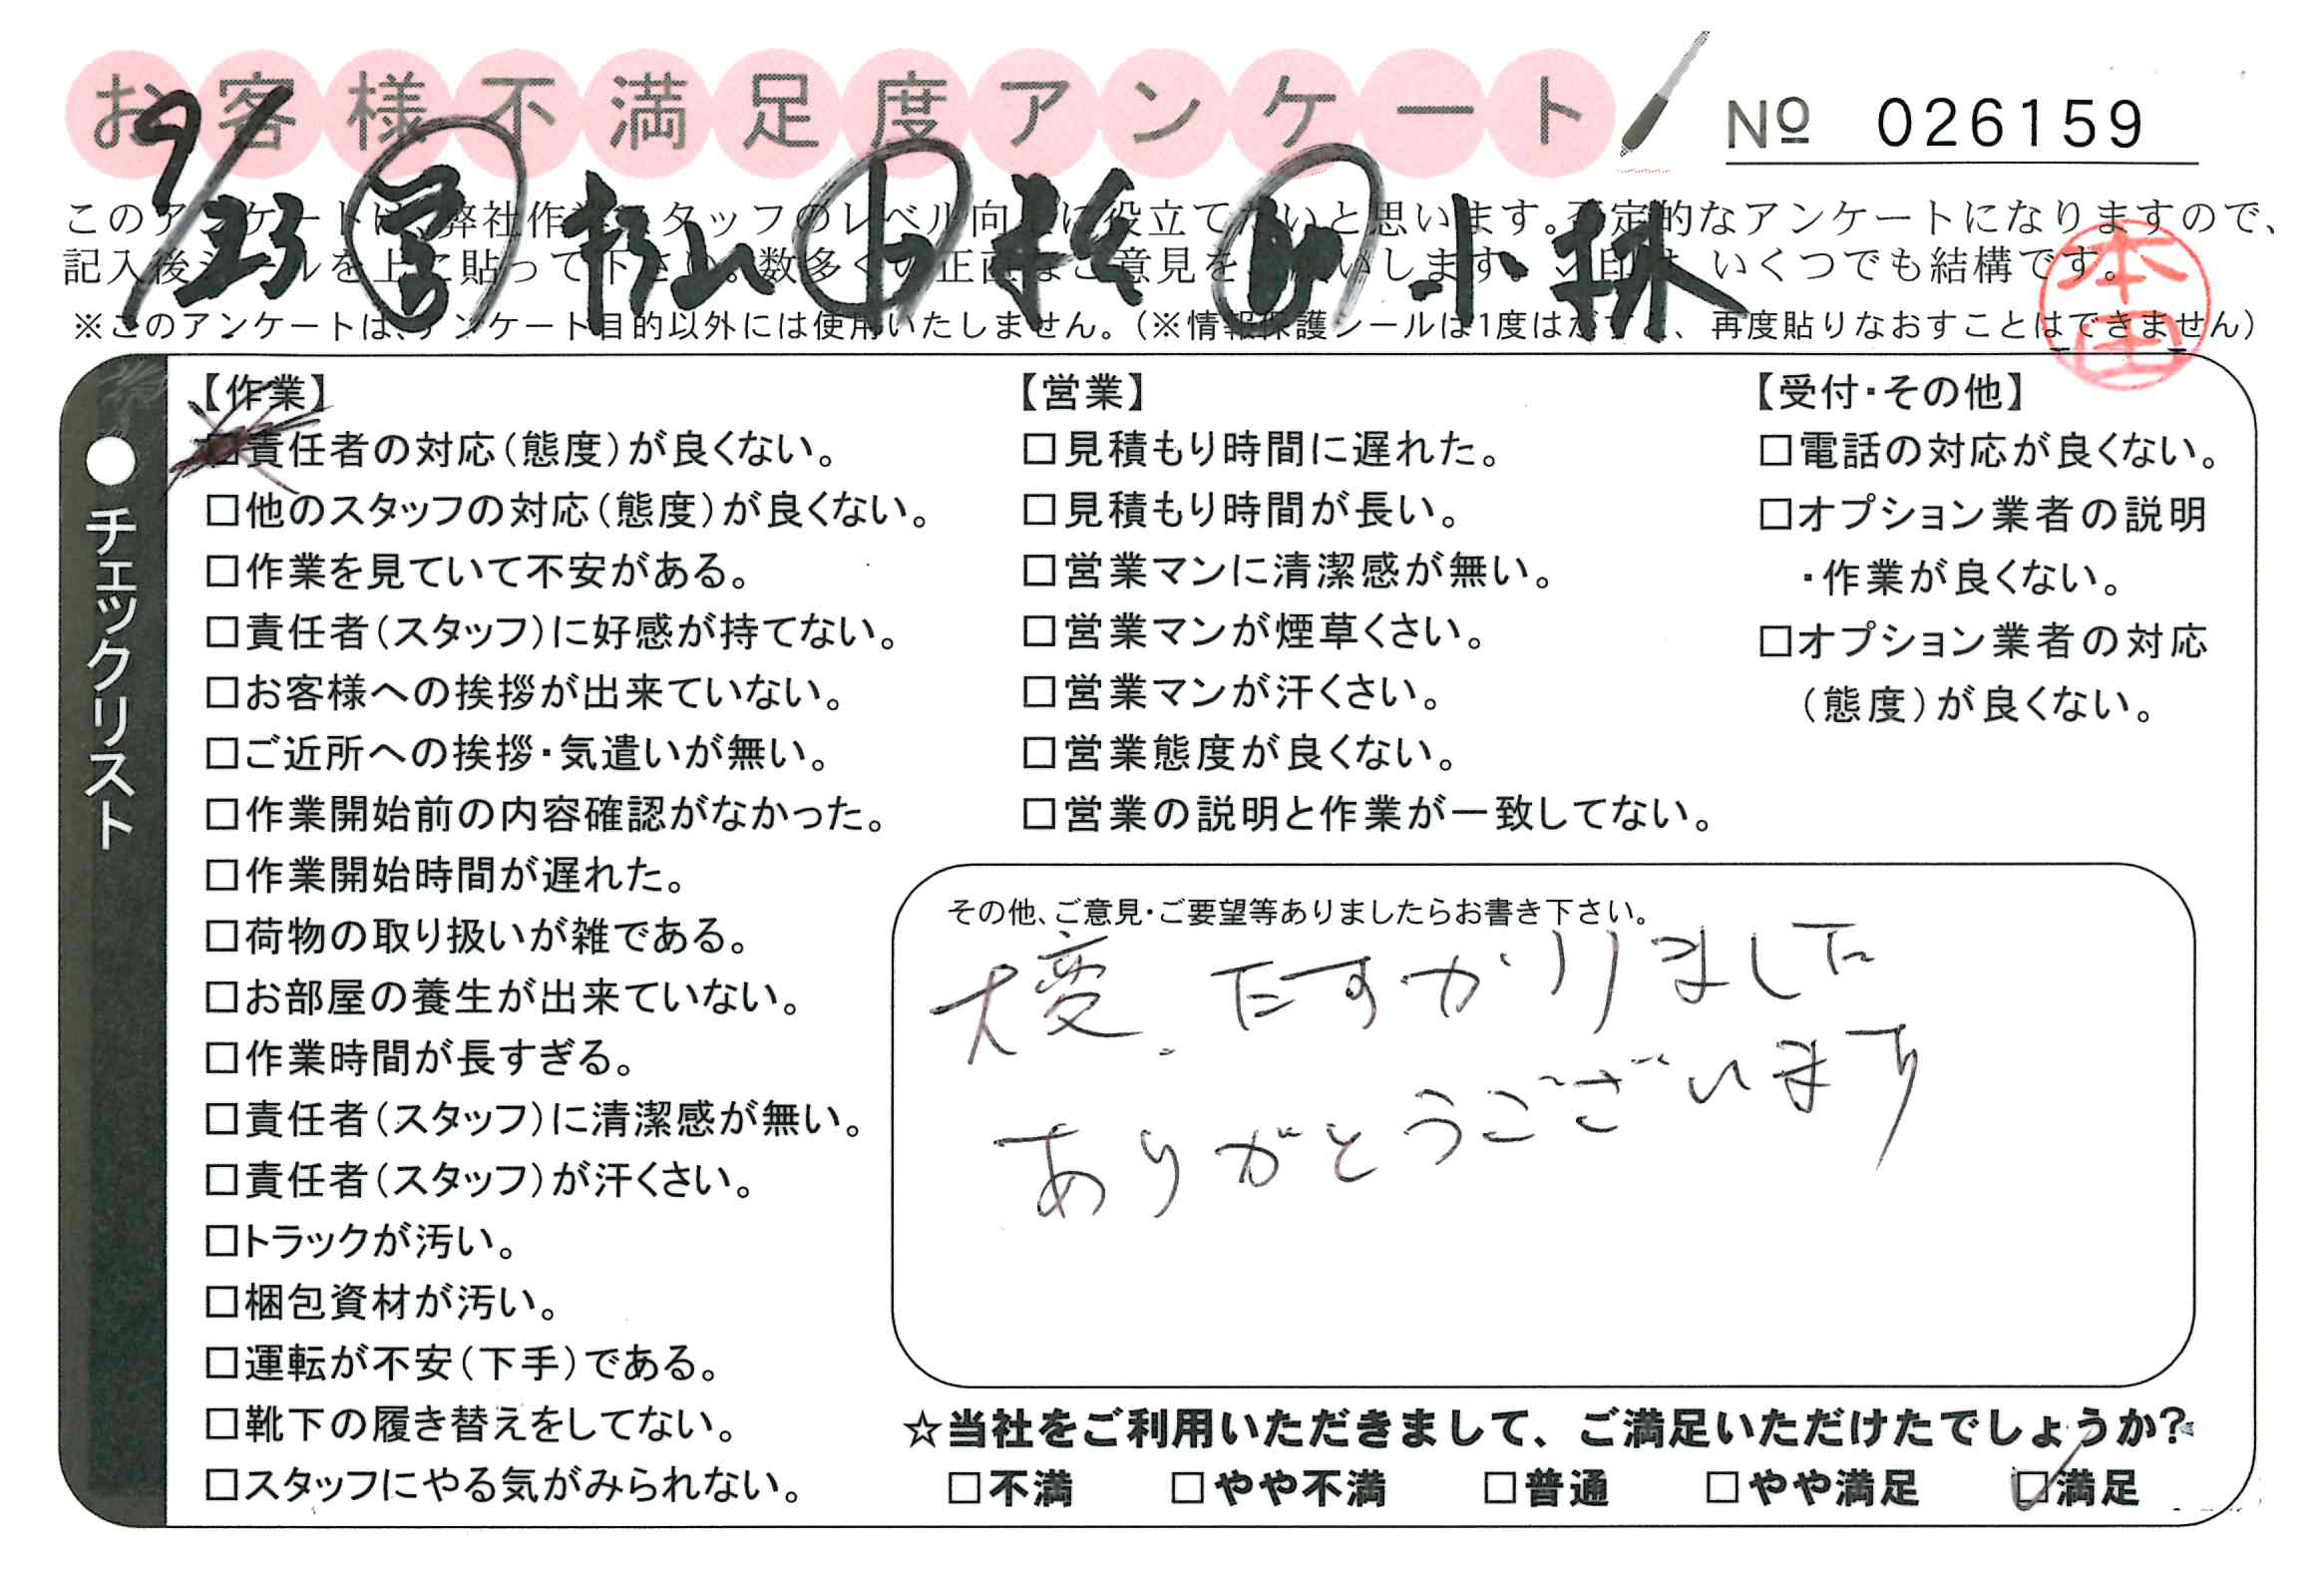 お客様不満足度アンケート
№ 026159
9/23 営 杉山 小林
このアンケートは、弊社作業スタッフのレベル向上に役立てたいと思います。否定的なアンケートになりますので、
記入後シールを上に貼って下さい。数多くの正直なご意見をお願いします。✓印は、いくつでも結構です。
※このアンケートは、アンケート目的以外には使用いたしません。（※情報保護シールは1度はがすと、再度貼りなおすことはできません）
本田
●チェックリスト
【作業】
□責任者の対応（態度）が良くない。
□他のスタッフの対応（態度）が良くない。
□作業を見ていて不安がある。
□責任者（スタッフ）に好感が持てない。
□お客様への挨拶が出来ていない。
□ご近所への挨拶・気遣いが無い。
□作業開始前の内容確認がなかった。
□作業開始時間が遅れた。
□荷物の取り扱いが雑である。
□お部屋の養生が出来ていない。
□作業時間が長すぎる。
□責任者（スタッフ）に清潔感が無い。
□責任者（スタッフ）が汗くさい。
□トラックが汚い。
□梱包資材が汚い。
□運転が不安（下手）である。
□靴下の履き替えをしてない。
□スタッフにやる気がみられない。
【営業】
□見積もり時間に遅れた。
□見積もり時間が長い。
□営業マンに清潔感が無い。
□営業マンが煙草くさい。
□営業マンが汗くさい。
□営業態度が良くない。
□営業の説明と作業が一致してない。
【受付・その他】
□電話の対応が良くない。
□オプション業者の説明
・作業が良くない。
□オプション業者の対応
（態度）が良くない。
その他、ご意見・ご要望等ありましたらお書き下さい。
大変、たすかりました
ありがとうございます
☆当社をご利用いただきまして、ご満足いただけたでしょうか？
□不満 □やや不満 □普通 □やや満足 ☑満足